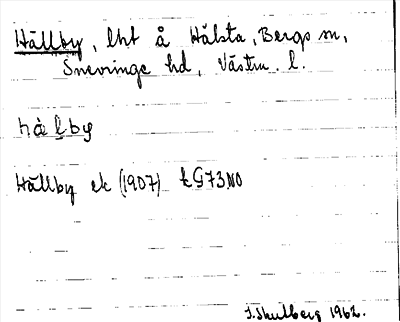 Hällby, lht å Hälsta, Bergs sn,
Snevringe hd, Västm. l.
hä̀lby
Hällby ek (1907) tG73NO
J. Skulberg 1962.